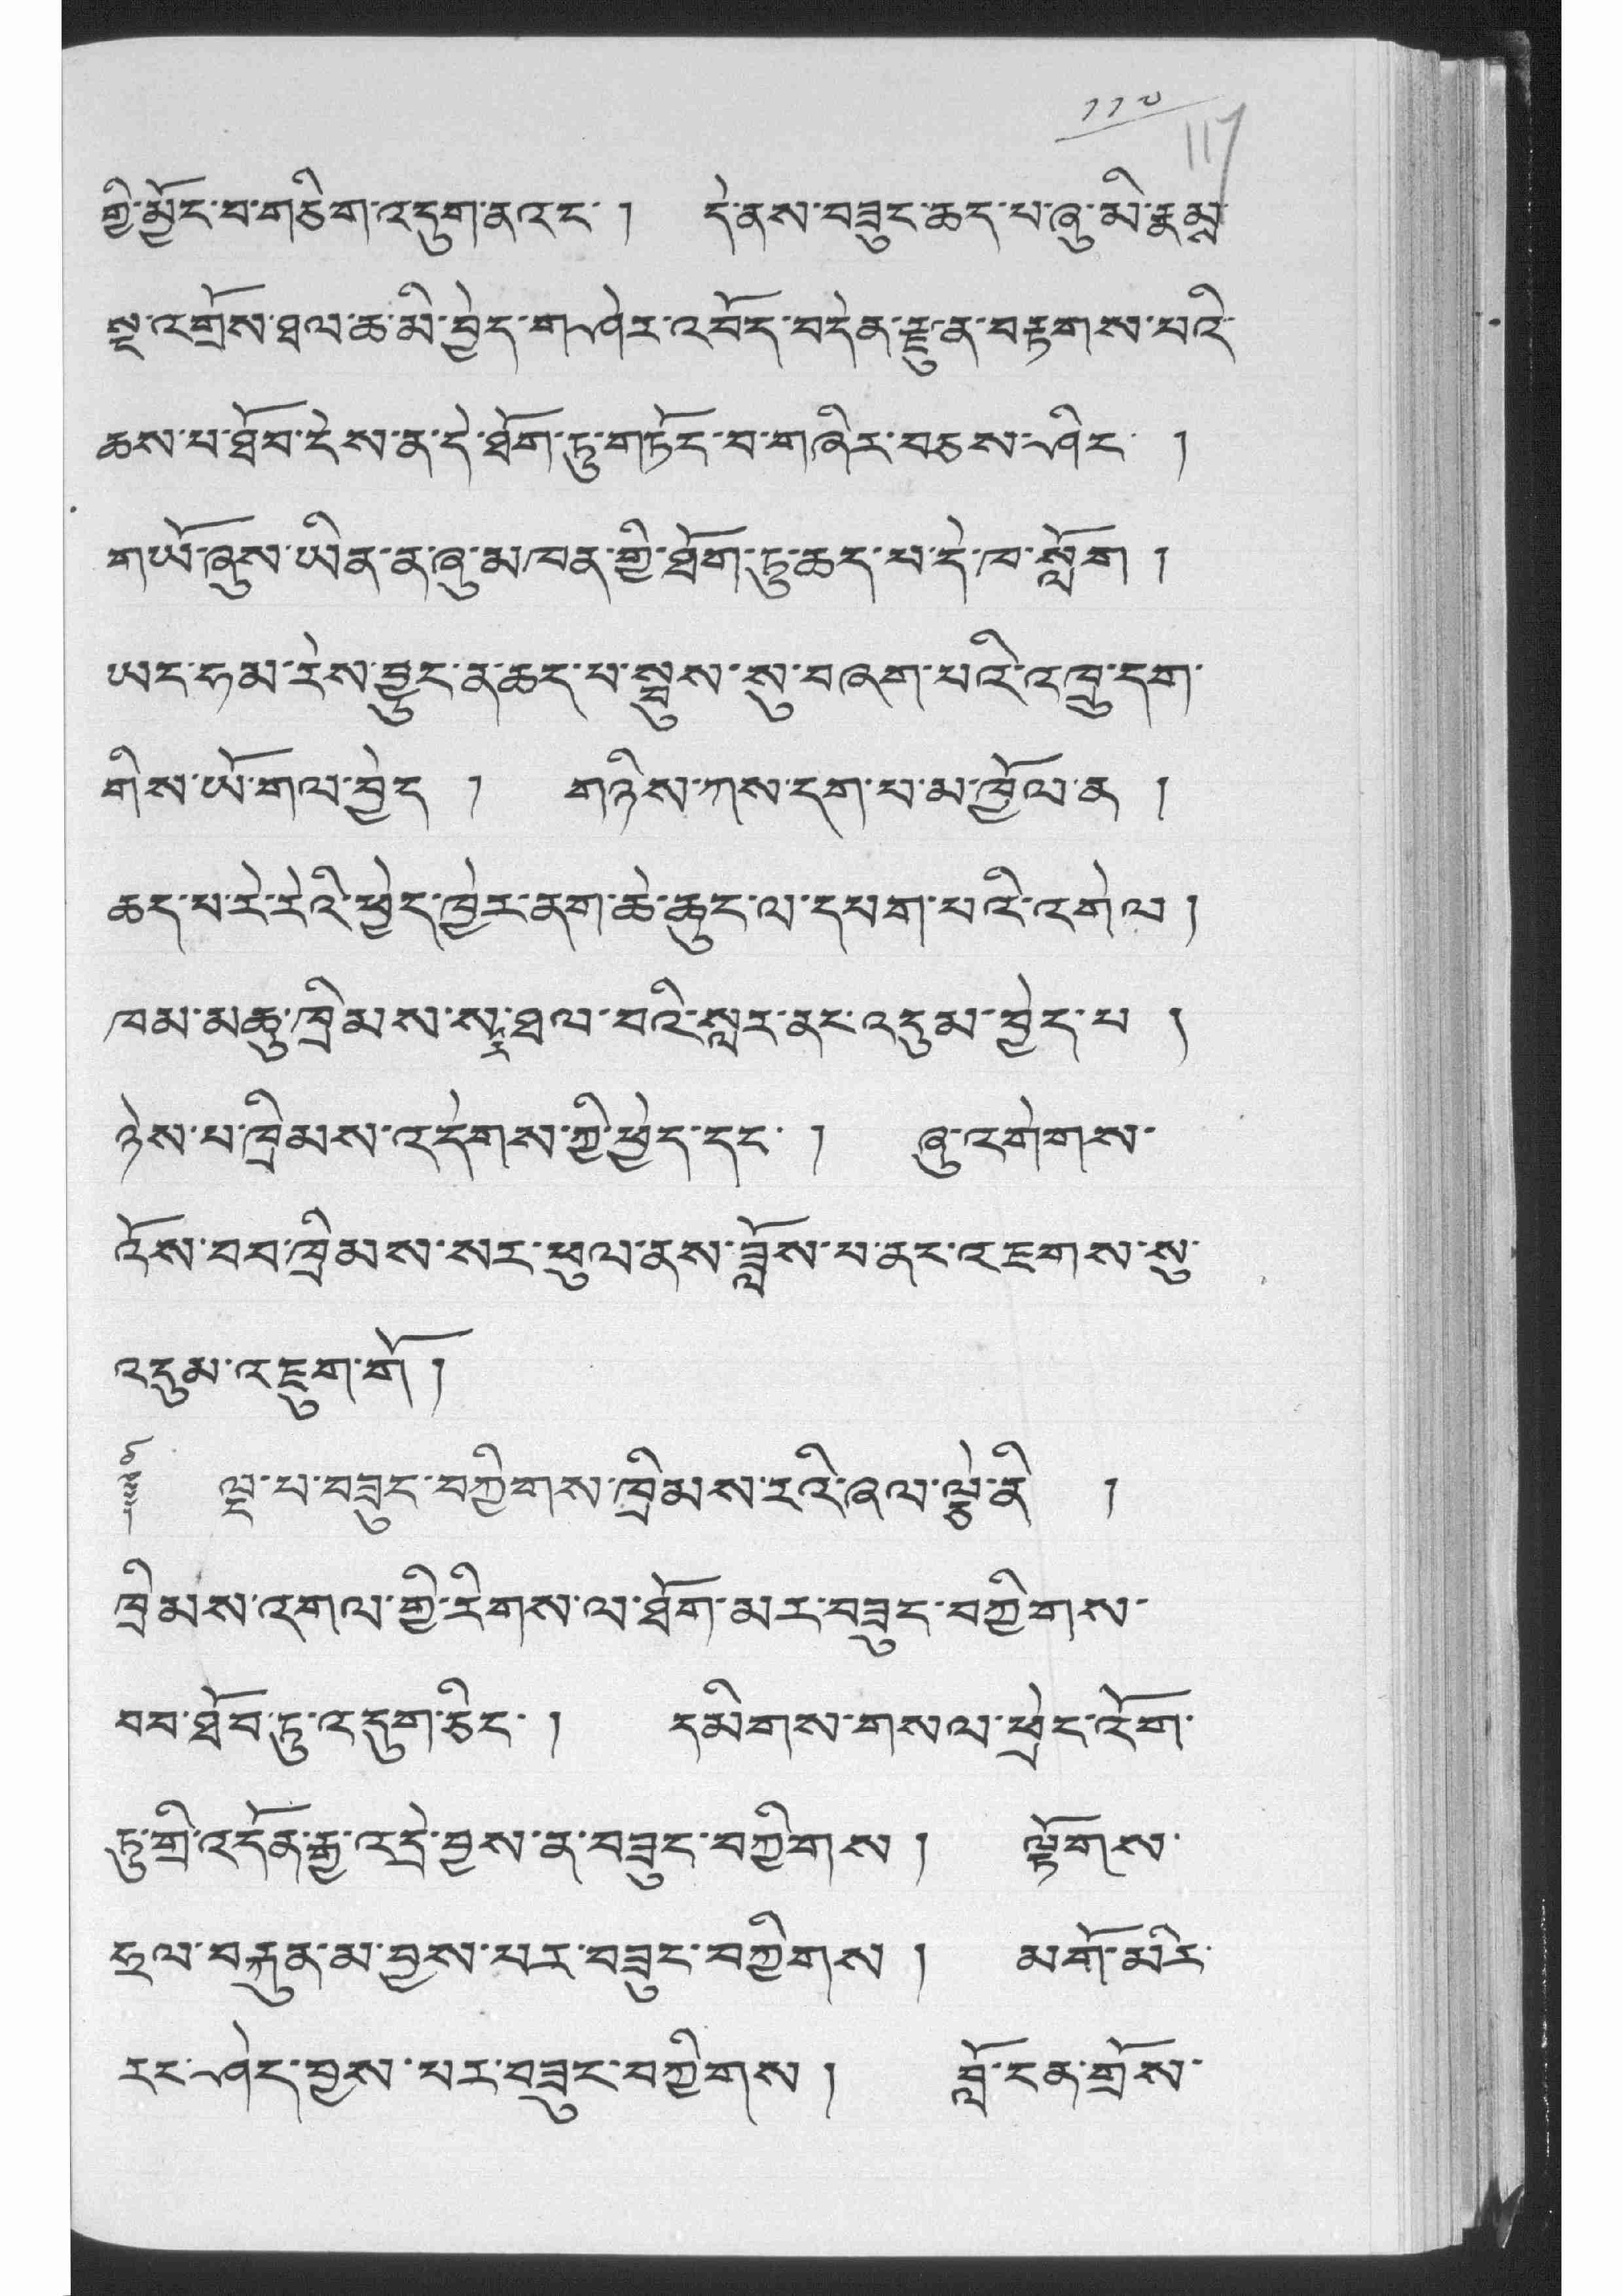 ༡༡༠
117
གྱི་མྱོང་བ་གཅིག་འདུག་ན་འང་། དེ་ནས་བཟུང་ཆད་པ་ཞུ་མི་རྣམས
སྔ་འགྲོས་ཐལ་ཆ་མི་བྱེད་གཤེར་འབོད་བདེན་རྫུན་བརྟགས་པའི་
ཆས་པ་ཐོབ་ངེས་ན་དེ་ཐོག་ཏུ་གཏོང་བ་གཞིར་བཅས་ཤིང་།
གཡོ་ཞུས་ཡིན་ན་ཞུ་མཁན་གྱི་ཐོག་ཏུ་ཆད་པ་དེ་ཁ་སློག།
ཡང་ཧམ་ངེས་བྱུང་ན་ཆད་པ་སྦུས་སུ་བཞག་པའི་འཁྲུ་དག་
གིས་ཡོ་གལ་བྱེད། གཉིས་ཀས་དག་པ་མ་ཁྱོལ་ན།
ཆད་པ་རེ་རེའི་ཕྱེད་ཁྱེར་ནག་ཆེ་ཆུང་ལ་དཔག་པའི་འགེལ།
ཁམ་མཆུ་ཁྲིམས་སར་ཐལ་བའི་སླར་ནང་འདུམ་བྱེད་པ།
ཉེས་པ་ཁྲིམས་འདེགས་ཀྱི་ཕྱེད་དང་། ཞུ་འགེགས་
འོས་བབ་ཁྲིམས་སར་ཕུལ་ནས་བློས་པ་ནང་འཇགས་སུ་
འདུམ་འཇུག་གོ།
༈ ལྔ་པ་བཟུང་བཀྱིགས་ཁྲིམས་རའི་ཞལ་ལྕེ་ནི།
ཁྲིམས་འགལ་གྱི་རིགས་ལ་ཐོག་མར་བཟུང་བཀྱིགས་
བབ་ཐོབ་ཏུ་འདུག་ཅིང་། དམིགས་གསལ་ཕྲེང་འོག་
ཏུ་གྲི་འདོན་རྒྱ་འདྲེ་བྱས་ན་བཟུང་བཀྱིགས། ལྟོགས་
ཧལ་བརྐུན་མ་བྱས་པར་བཟུང་བཀྱིགས། མགོ་མའི་
རང་ཤེད་བྱས་པར་བཟུང་བཀྱིགས། བློ་ངན་གྲོས་